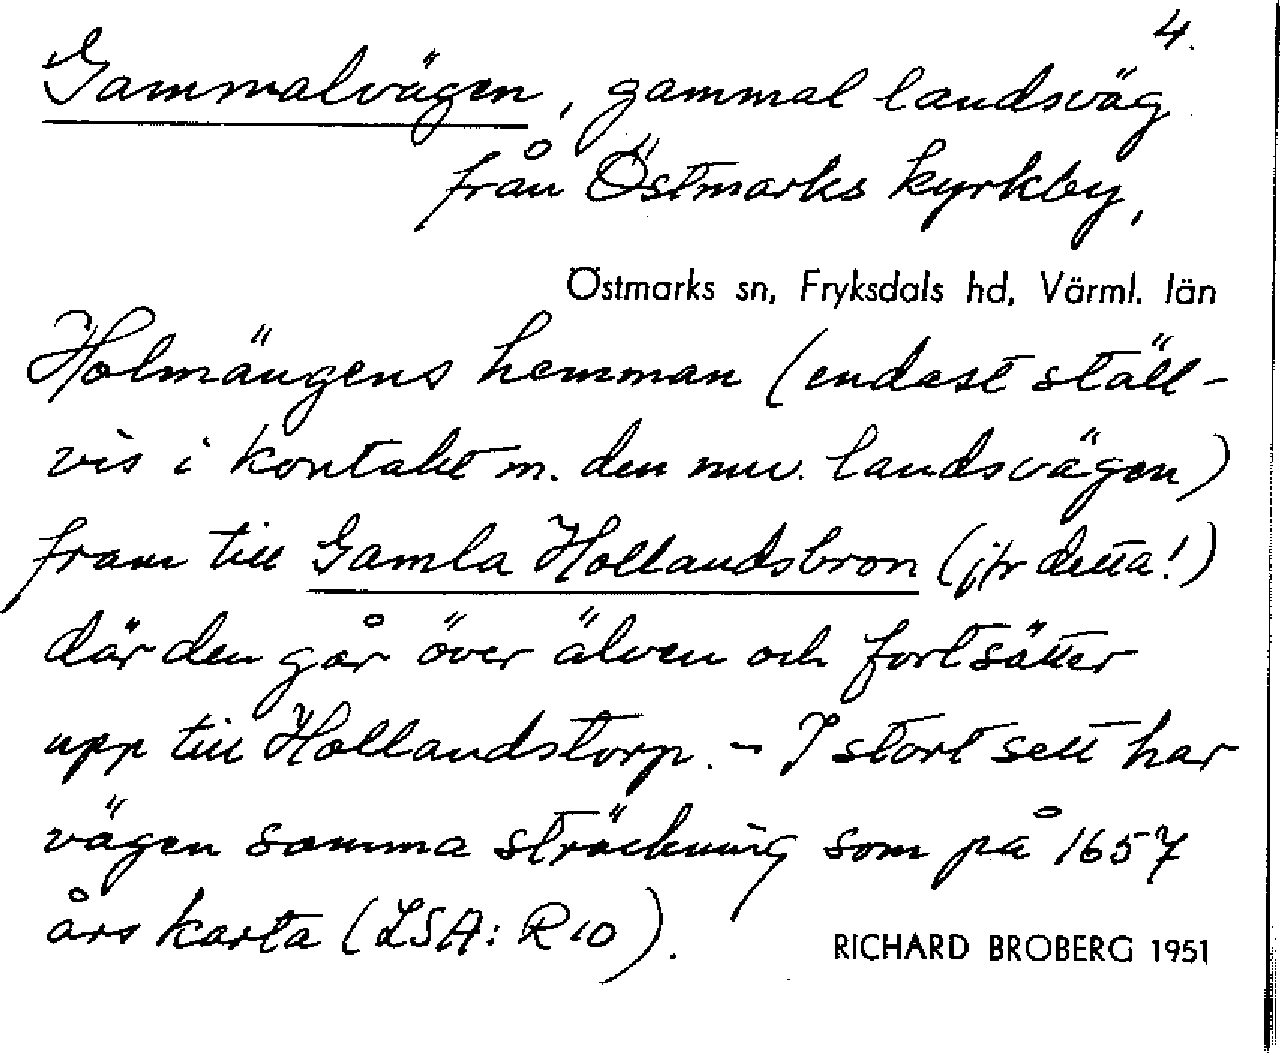 4.
Gammalvägen, gammal landsväg
från Östmarks kyrkby,
Östmarks sn, Fryksdals hd, Värml. län
Holmängens hemman (endast ställ-
vis i kontakt m. den nuv. landsvägen)
fram till Gamla Hollandsbron (jfr detta!)
där den går över älven och fortsätter
upp till Hollandstorp. - I stort sett har
vägen samma sträckning som på 1657
års karta (LSA: R 10).
RICHARD BROBERG 1951